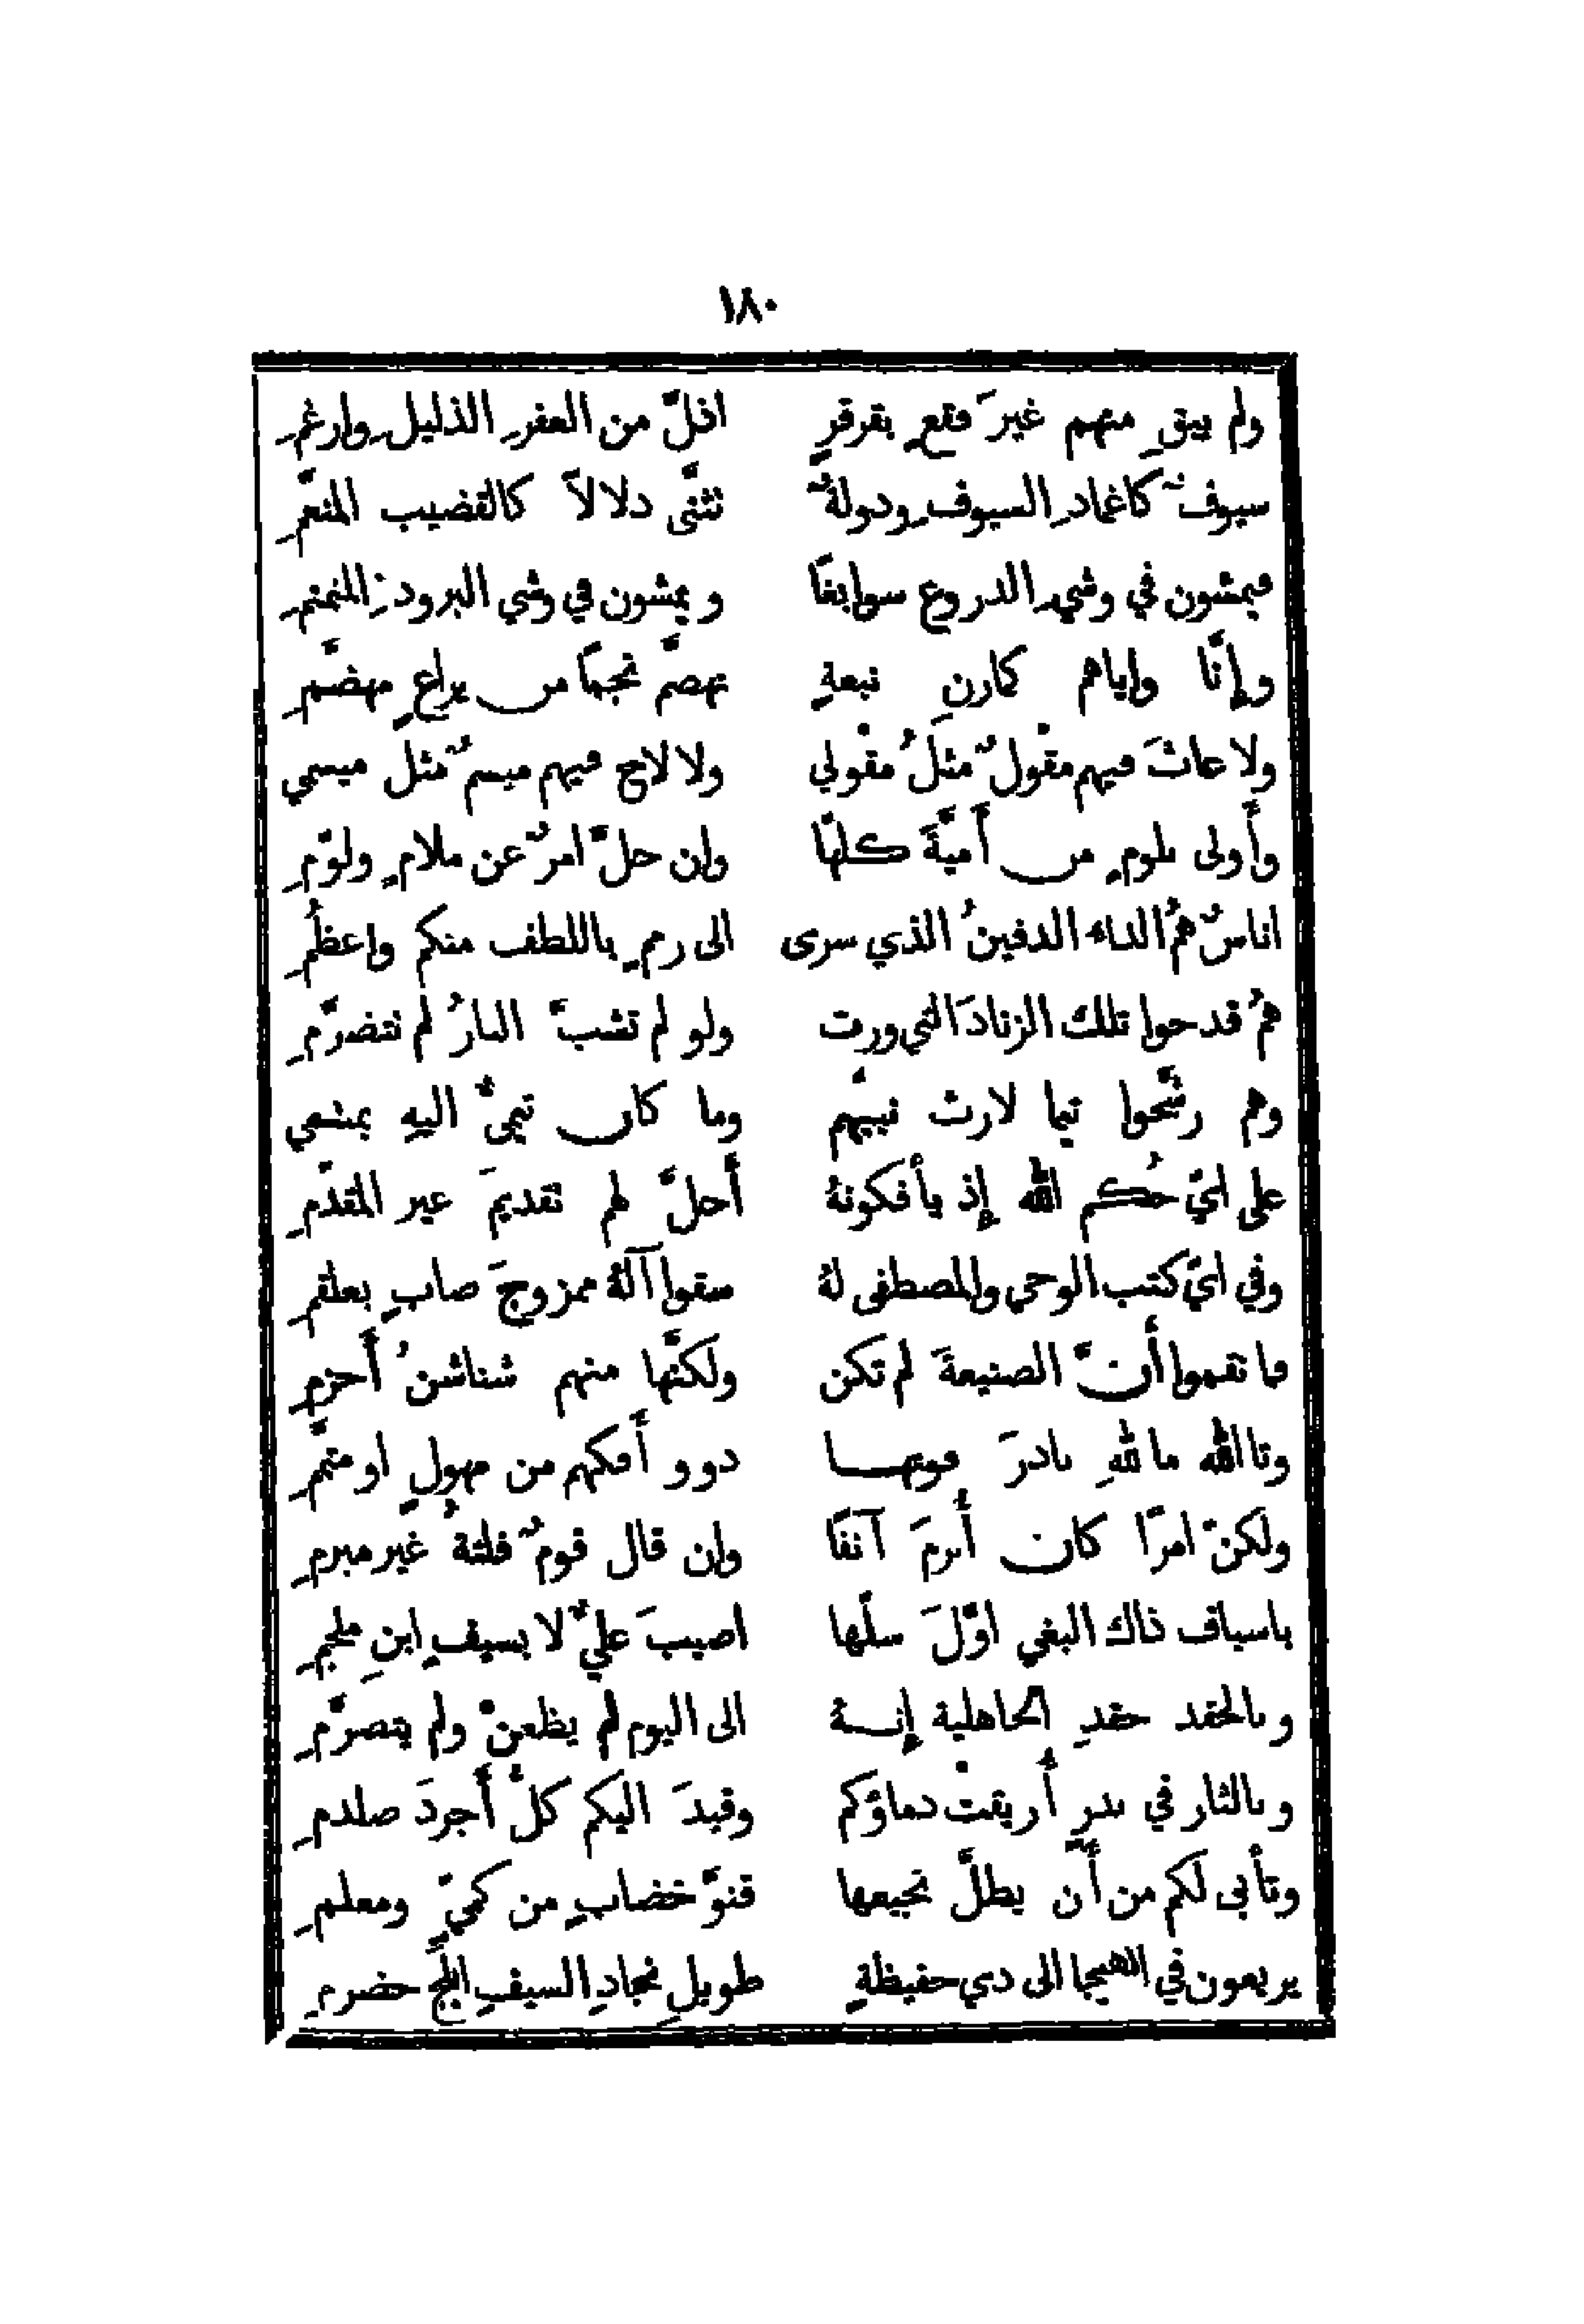 ١٨٠
ولم يبقِ منهم غيرَ فقعٍ بقرقرٍ اذلّ من العفرِ الذليلِ وارغمِ
سيوفٌ كاغمادِ السيوفِ ودولةٌ تثنّى دلالاً كالقضيب المنعّمِ
فيمشون في وشيِ الدروع سوابغًا ويمشون في وشي البرودِ المنمنمِ
وإنّا واياهم كمارنِ نبعةٍ تهضّم نجمًا من يراعٍ مهضّمِ
ولا عاثَ فيهم مقْولٌ مثلُ مقْولي ولا لاح فيهم ميسمٌ مثل ميسمي
وأَولى بلومٍ من أُميّةَ كلها وان حلّ امرٌ عن ملامٍ ولوّمِ
اناسٌ همُ الداء الدفينُ الذي سرى الى رممٍ باللطف منكم واعظُمِ
همُ قدحوا تلك الزنادَ التي ورت ولو لم تشبّ النارُ لم تتضرّمِ
وهم رشّحوا تيما لارث نبيّهم وما كان تيميٌّ اليهِ بمنتمي
على ايّ حُكم الله إذ يأفكونهُ أَحلّ لهم تقديمَ غير المقدّمِ
وفي ايّ كتب الوحي والمصطفى لهُ سقوا آلهُ ممزوجَ صابٍ بعلقمِ
فما نقموا أَنّ الصنيعةَ لم تكن ولكنّها منهم شناشنُ أَخزمِ
وتاالله ما للهِ بادرَ فوتها ذوو أَفكهم من مهولٍ او متهّمِ
ولكنّ امرًا كان أُبرمَ آنفًا وان قال قومٌ فلتةٌ غير مبرمِ
باسياف ذاك البغي اوّلَ سلّها اصيبَ عليٌّ لا بسيفِ ابنِ ملجمِ
وبالحقد حقدِ الجاهلية إنهُ الى اليوم لم يظعنْ ولم يتصرّمِ
وبالثار في بدرٍ أُريقتْ دماؤكم وقيدَ اليكم كلُّ أَجردَ صلدمِ
وتأبى لكم من أَن يطلّ نجيعها قنوّ خضابٍ من كميٍّ ومعلمِ
يريعون في الهيجا الى ذي حفيظةٍ طويلِ نجادِ السيفِ ابلجَ خضرمِ